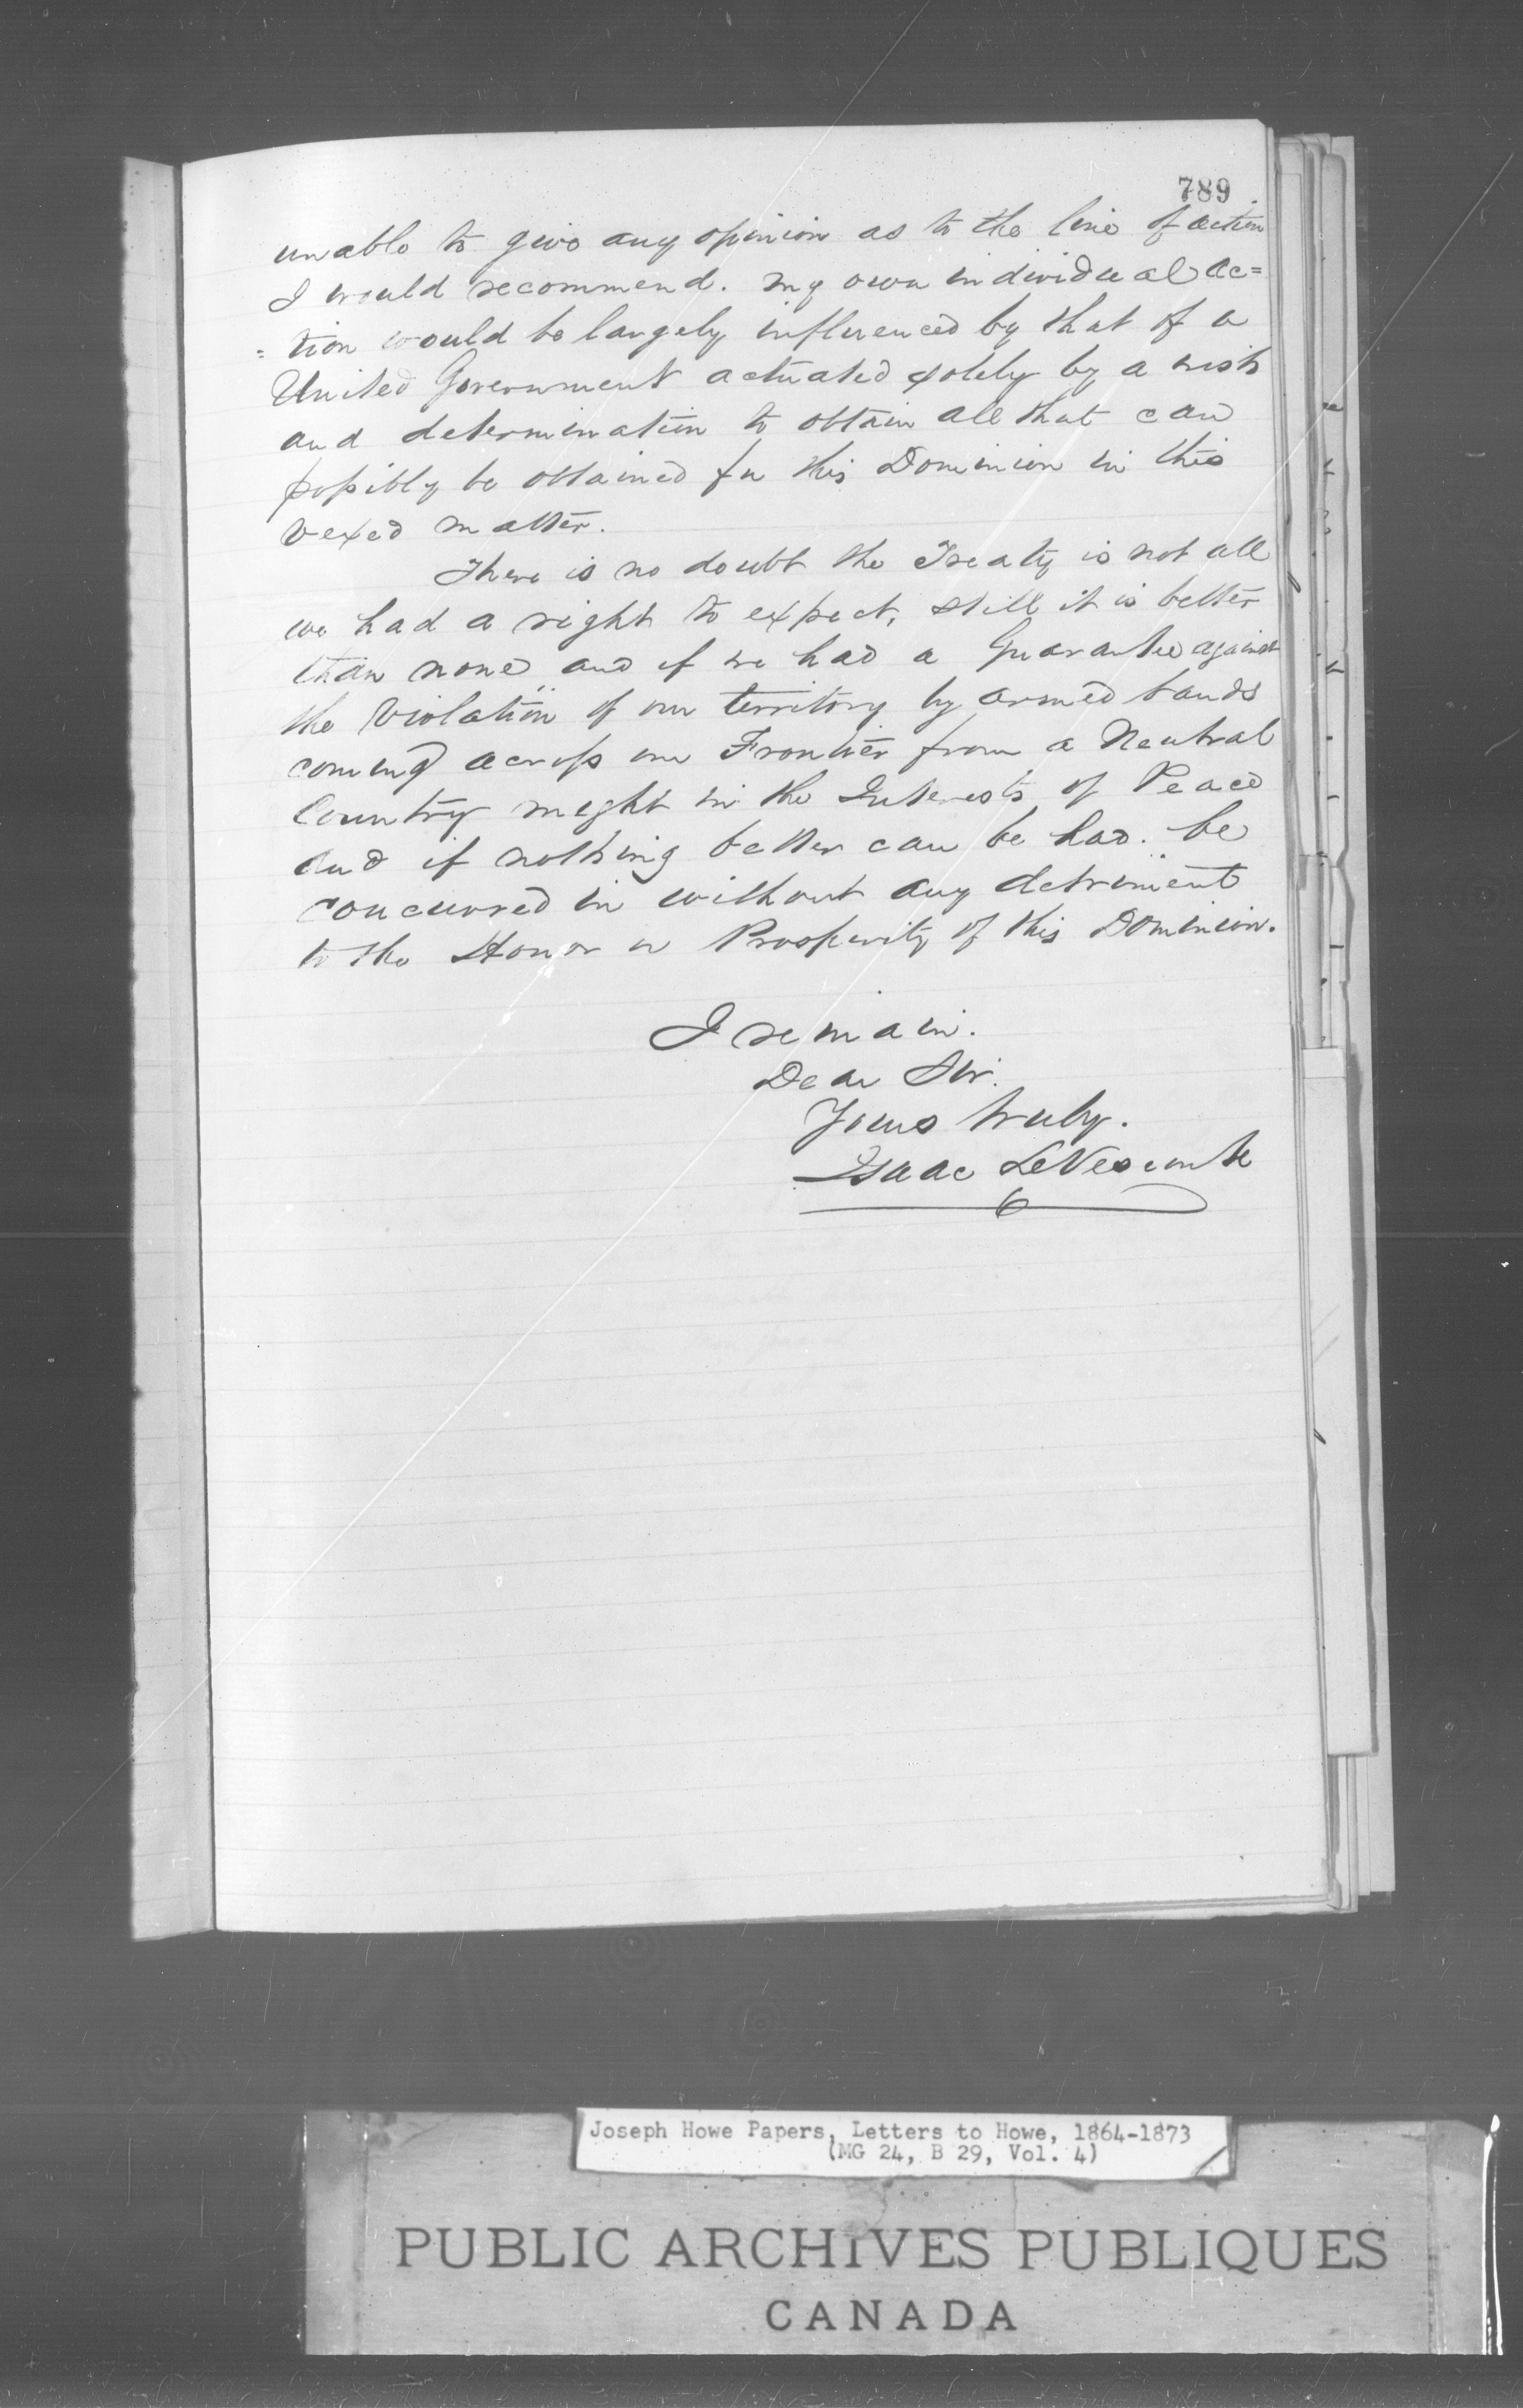 789
unable to give any opinion as to the line of action
I would recommend. My own individual ac=
=tion would be largely influenced by that of a
United Government actuated solely by a wish
and determination to obtain all that can
possibly be obtained for this Dominion in this
vexed matter.
There is no doubt the Treaty is not all
we had a right to expect, still it is better
than none and if we had a Guarantee against
the Violation of our territory by armed bands
coming across our Frontier from a Neutral
Country might in the Interests of Peace
and if nothing better can be had. be
concurred in without any detriment
to the Honor or Prosperity of this Dominion.
I remain.
Dear Sir.
Yours truly.
Isaac LeVesconte
Joseph Howe Papers, Letters to Howe, 1864-1873
(MG 24, B 29, Vol. 4)
PUBLIC ARCHIVES PUBLIQUES
CANADA